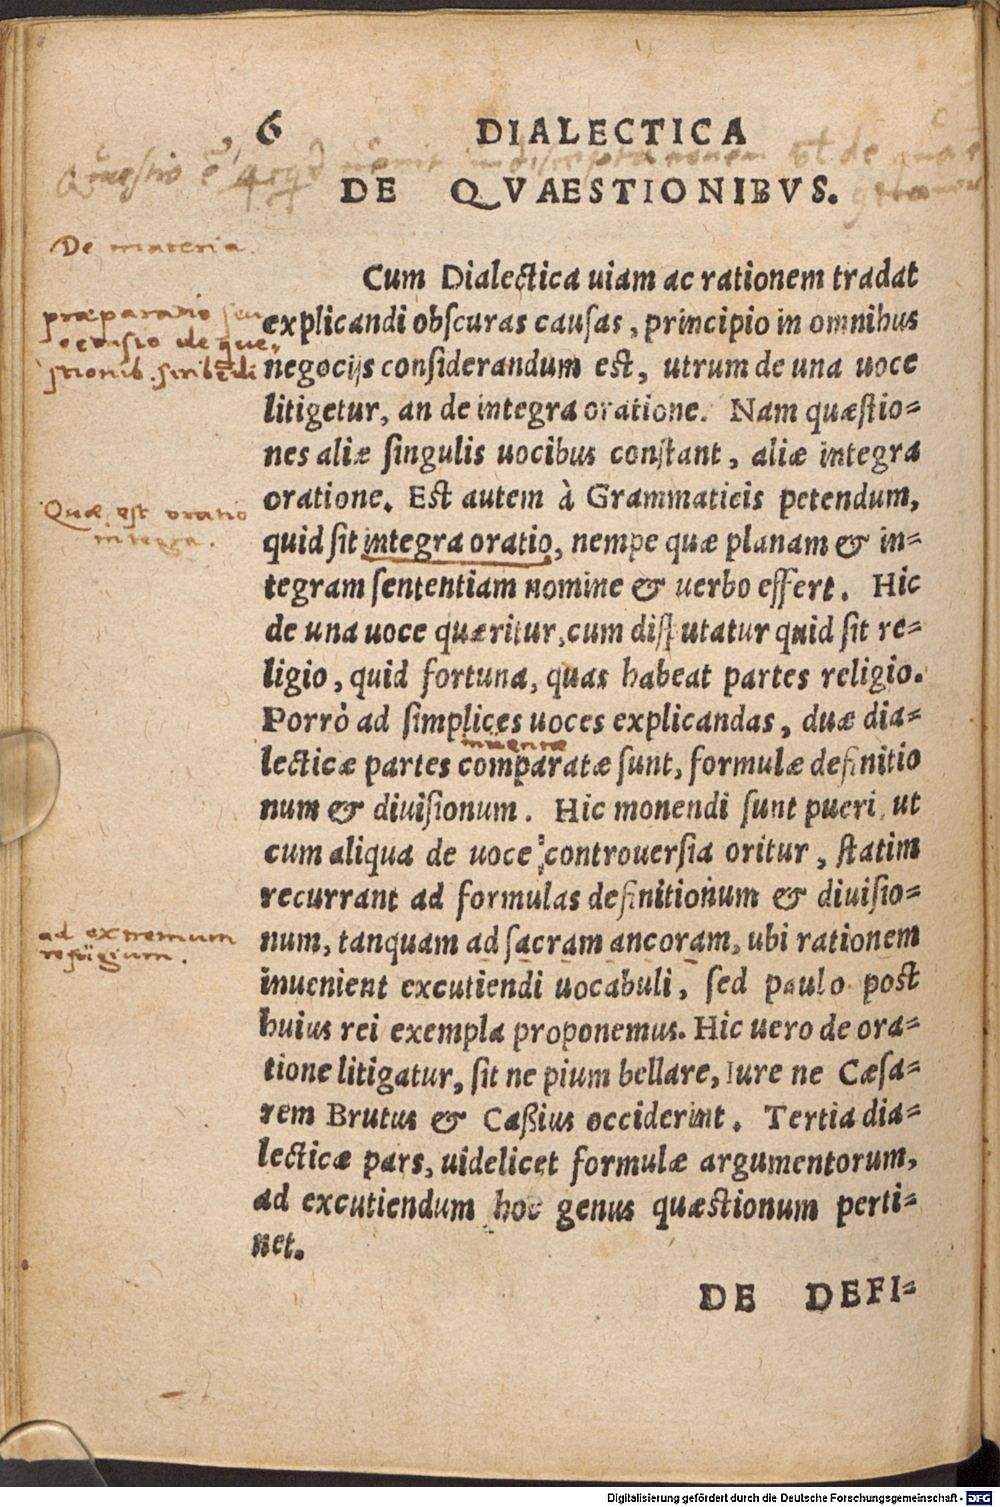 6 DIALECTICA
Quæstio
DE QVAESTIONIBVS.
De materia.
Cum Dialectica uiam ac rationem tradat
præparatio seu
explicandi obscuras causas, principio in omnibus
occasio de quæ-
negocijs considerandum est, utrum de una uoce
stionib. scribẽdi
litigetur, an de integra oratione. Nam quæstio-
nes aliæ singulis uocibus constant, aliæ integra
oratione. Est autem à Grammaticis petendum,
Quæ est oratio
integra.
quid sit integra oratio, nempe quæ planam & in-
tegram sententiam nomine & uerbo effert. Hic
de una uoce quæritur, cum disputatur quid sit re-
ligio, quid fortuna, quas habeat partes religio.
Porrò ad simplices uoces explicandas, duæ dia-
inuentæ
lecticæ partes comparatæ sunt, formulæ definitio
num & diuisionum. Hic monendi sunt pueri, ut
cum aliqua de uoce controuersia oritur, statim
recurrant ad formulas definitionum & diuisio-
ad extremum
num, tanquam ad sacram ancoram, ubi rationem
refugium.
inuenient excutiendi uocabuli, sed paulo post
huius rei exempla proponemus. Hic uero de ora-
tione litigatur, sit ne pium bellare, Iure ne Cæsa-
rem Brutus & Caßius occiderint. Tertia dia-
lecticæ pars, uidelicet formulæ argumentorum,
ad excutiendum hoc genus quæstionum perti-
net.
DE DEFI-
Digitalisierung gefördert durch die Deutsche Forschungsgemeinschaft - DFG